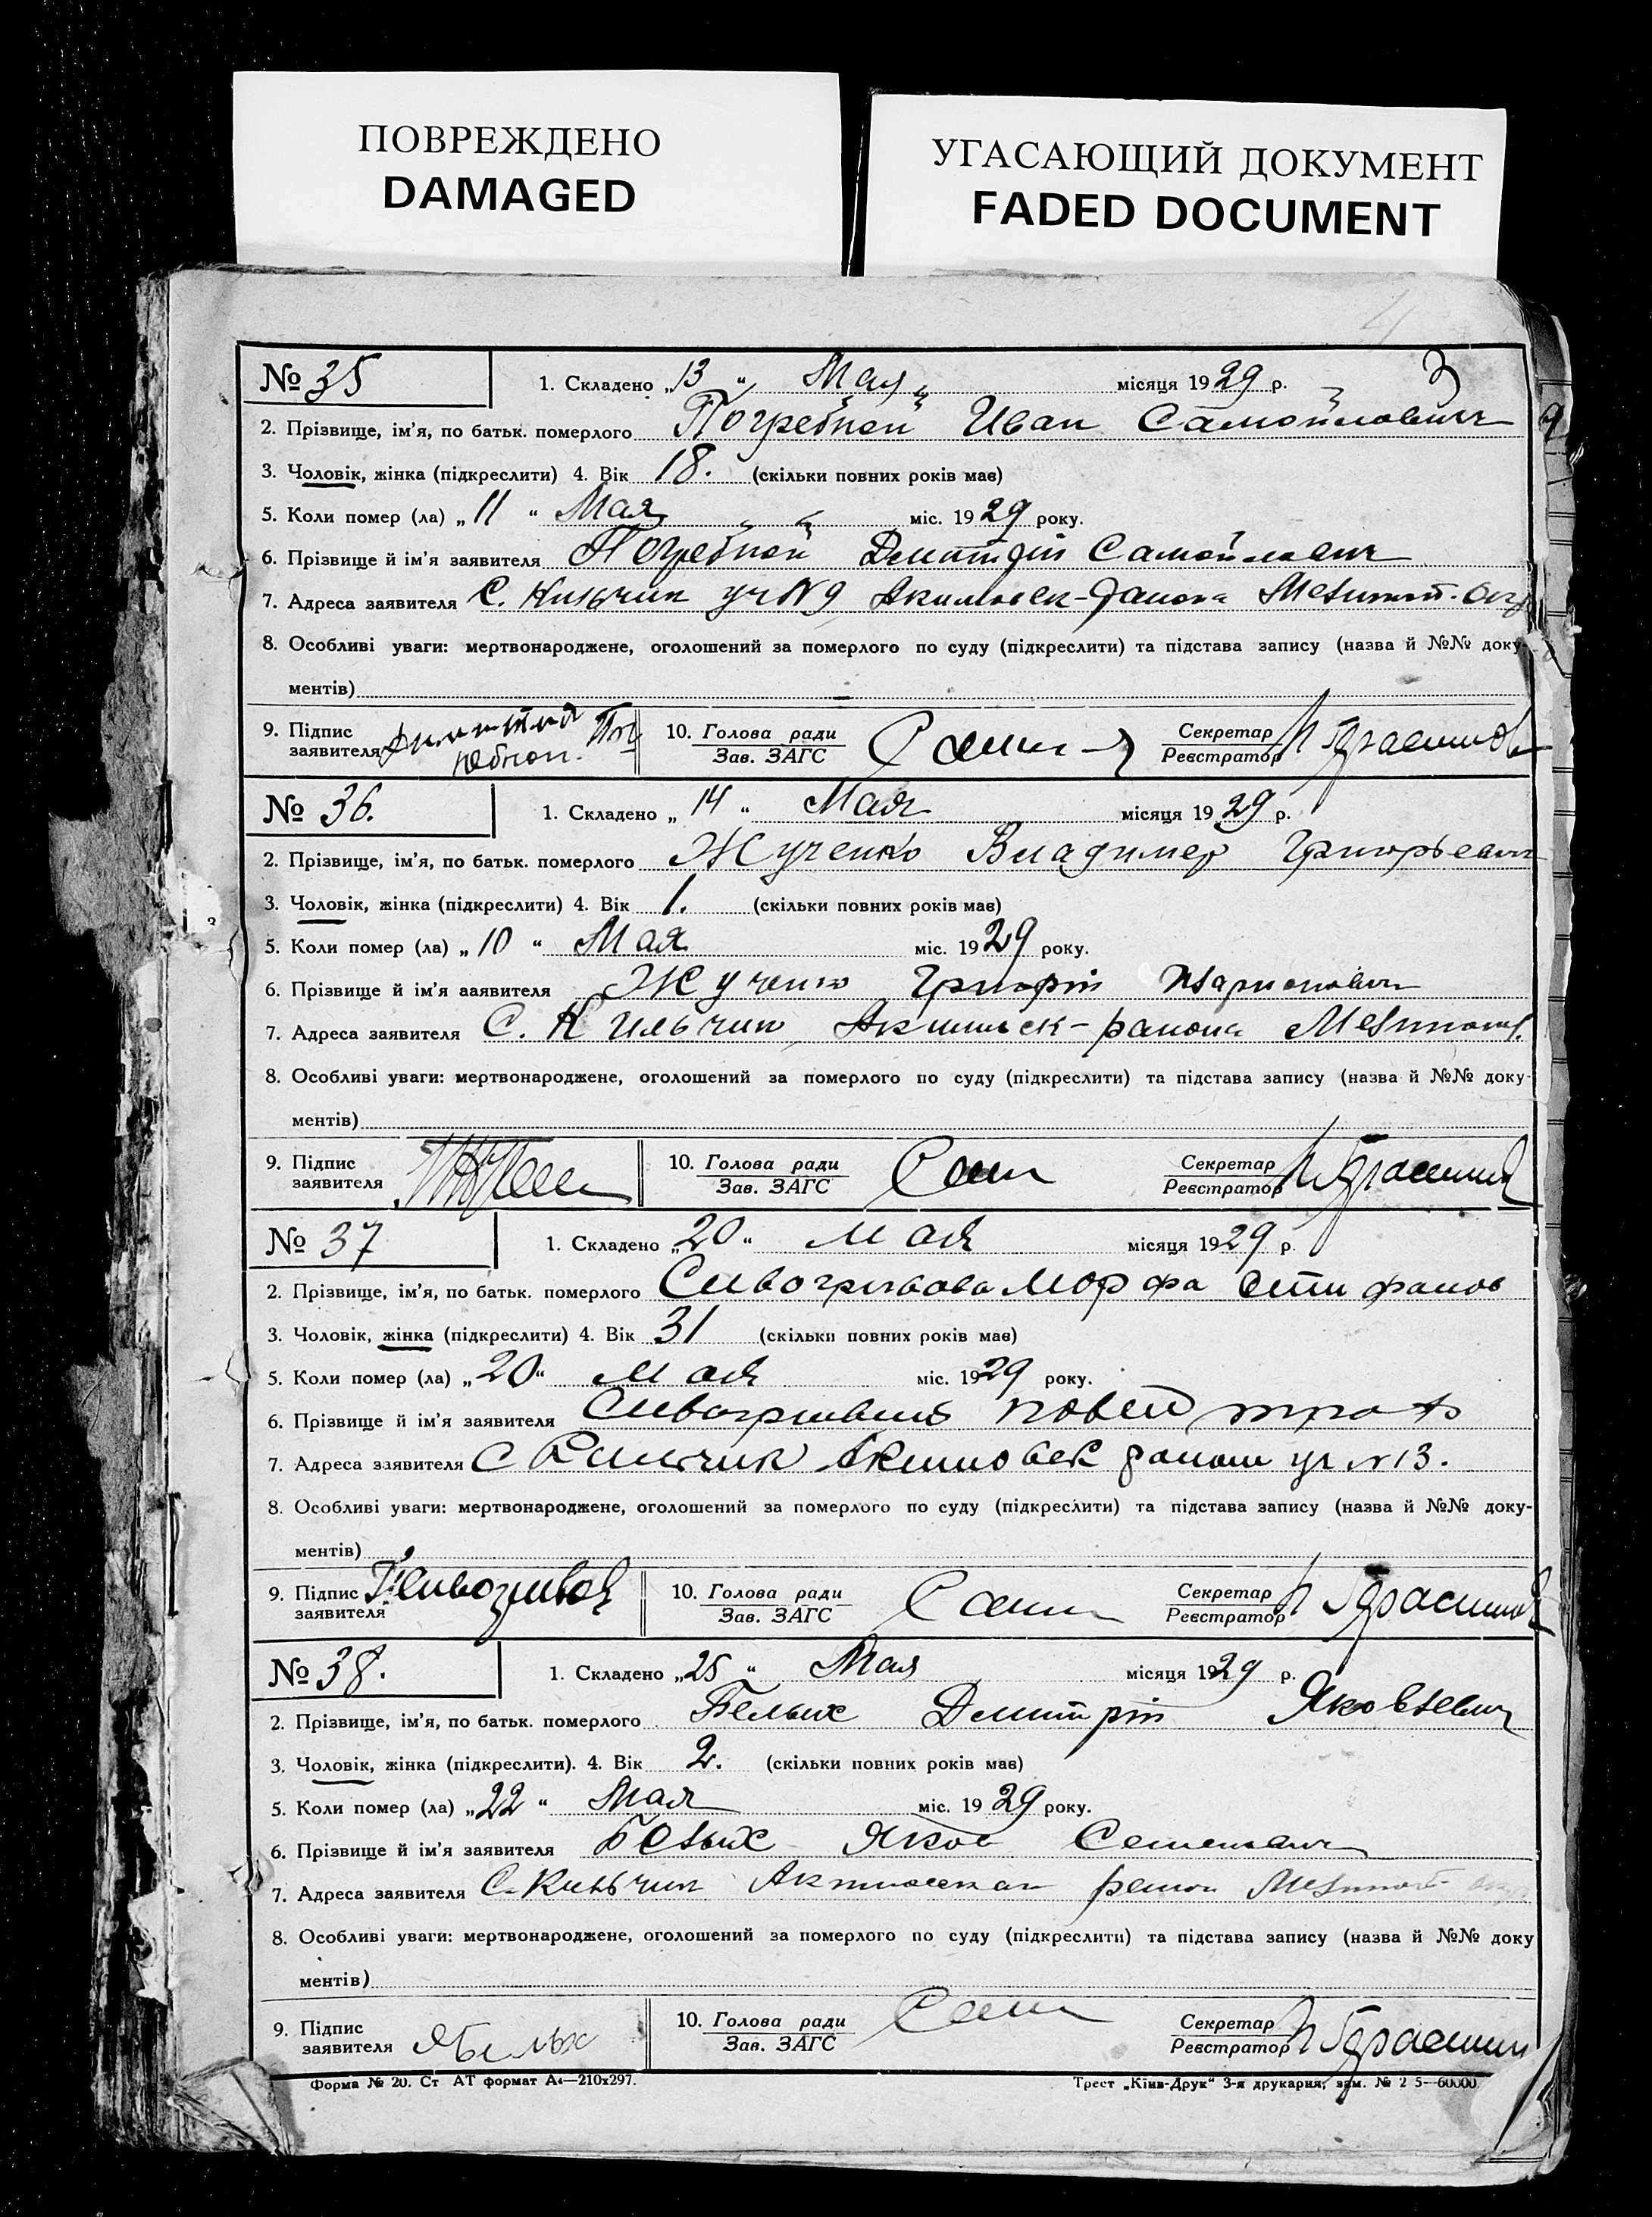 ПОВРЕЖДЕНО
DAMAGED
УГАСАЮЩИЙ ДОКУМЕНТ
FADED DOCUMENT
3
№ 35
1. Складено „13" Мая місяця 1929 р.
2. Прізвище, ім'я, по батьк. померлого Погребной Иван Самойлович
3. Чоловік, жінка (підкреслити) 4. Вік 18. (скільки повних років має)
5. Коли помер (ла) „11" Мая міс. 1929 року.
6. Прізвище й ім'я заявителя Погребной Дмитрій Самойлович
7. Адреса заявителя С. Кильчик уч № 9 Акимовск-района Мелитоп. Окр
8. Особливі уваги: мертвонароджене, оголошений за померлого по суду (підкреслити) та підстава запису (назва й №№ доку-
ментів)
9. Підпис заявителя 10. Голова ради Зав. ЗАГС Секретар Реєстратор
№ 36.
1. Складено „14" Мая місяця 1929 р.
2. Прізвище, ім'я, по батьк. померлого Жученко Владимер Григорьевич
3. Чоловік, жінка (підкреслити) 4. Вік 1. (скільки повних років має)
5. Коли помер (ла) „10" Мая міс. 1929 року.
6. Прізвище й ім'я заявителя Жученко Григорій
7. Адреса заявителя С. Кильчик, Акимовск-района Мелитоп.
8. Особливі уваги: мертвонароджене, оголошений за померлого по суду (підкреслити) та підстава запису (назва й №№ доку-
ментів)
9. Підпис заявителя 10. Голова ради Зав. ЗАГС Секретар Реєстратор
№ 37
1. Складено „20" мая місяця 1929 р.
2. Прізвище, ім'я, по батьк. померлого Сивогривова Морфа Стифанов
3. Чоловік, жінка (підкреслити) 4. Вік 31 (скільки повних років має)
5. Коли помер (ла) „20" мая міс. 1929 року.
6. Прізвище й ім'я заявителя Сивогривов
7. Адреса заявителя С Кильчик Акимовск район уч № 13.
8. Особливі уваги: мертвонароджене, оголошений за померлого по суду (підкреслити) та підстава запису (назва й №№ доку-
ментів)
9. Підпис заявителя 10. Голова ради Зав. ЗАГС Секретар Реєстратор
№ 38.
1. Складено „25" Мая місяця 1929 р.
2. Прізвище, ім'я, по батьк. померлого Белых Дмитрій Яковлевич
3. Чоловік, жінка (підкреслити). 4. Вік 2. (скільки повних років має)
5. Коли помер (ла) „22" Мая міс. 1929 року.
6. Прізвище й ім'я заявителя Белых Яков Семенович
7. Адреса заявителя С. Кильчик район Мелитоп
8. Особливі уваги: мертвонароджене, оголошений за померлого по суду (підкреслити) та підстава запису (назва й №№ доку
ментів)
9. Підпис заявителя Я Белых 10. Голова ради Зав. ЗАГС Секретар Реєстратор
Форма № 20. Ст АТ формат А4—210х297.
Трест „Київ-Друк" 3-я друкарня, зам. №